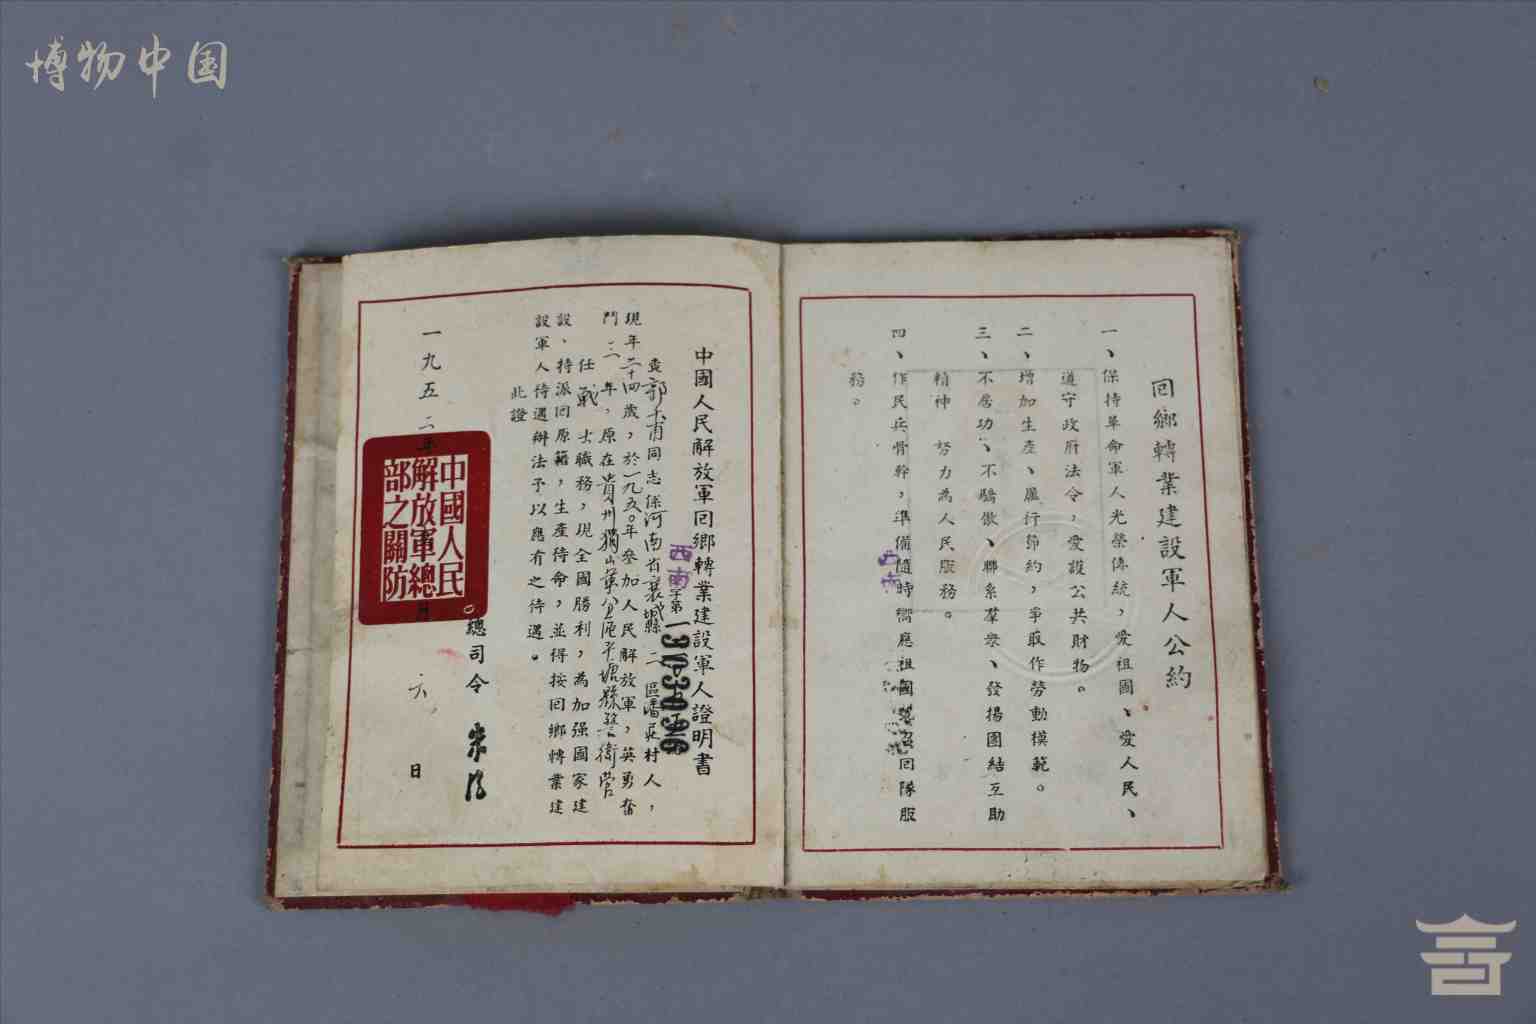 博物中国
回鄉轉業建設軍人公約
一、保持革命軍人光榮傳統，愛祖國、愛人民、
遵守政府法令，愛護公共財物。
二、增加生產、厲行節約，爭取作勞動模範。
三、不居功、不驕傲、聯系羣衆、發揚團結互助
精神 努力為人民服務。
四、作民兵骨幹，準備隨時響應祖國號召回隊服
務。
西南
中國人民解放軍回鄉轉業建設軍人證明書
西南字第
查郭 甫同志係河南省襄城縣二區潘莊村人，
現年二十四歲，於一九五〇年參加人民解放軍，英勇奮
鬥三年，原在貴州獨山軍分區平塘縣警衛營
任戰士職務，現全國勝利，為加强國家建
設、特派回原籍，生產待命，並得按回鄉轉業建
設軍人待遇辦法予以應有之待遇。
此證
總司令 朱德
一九五二年 月六日
中國人民
解放軍總
部之關防